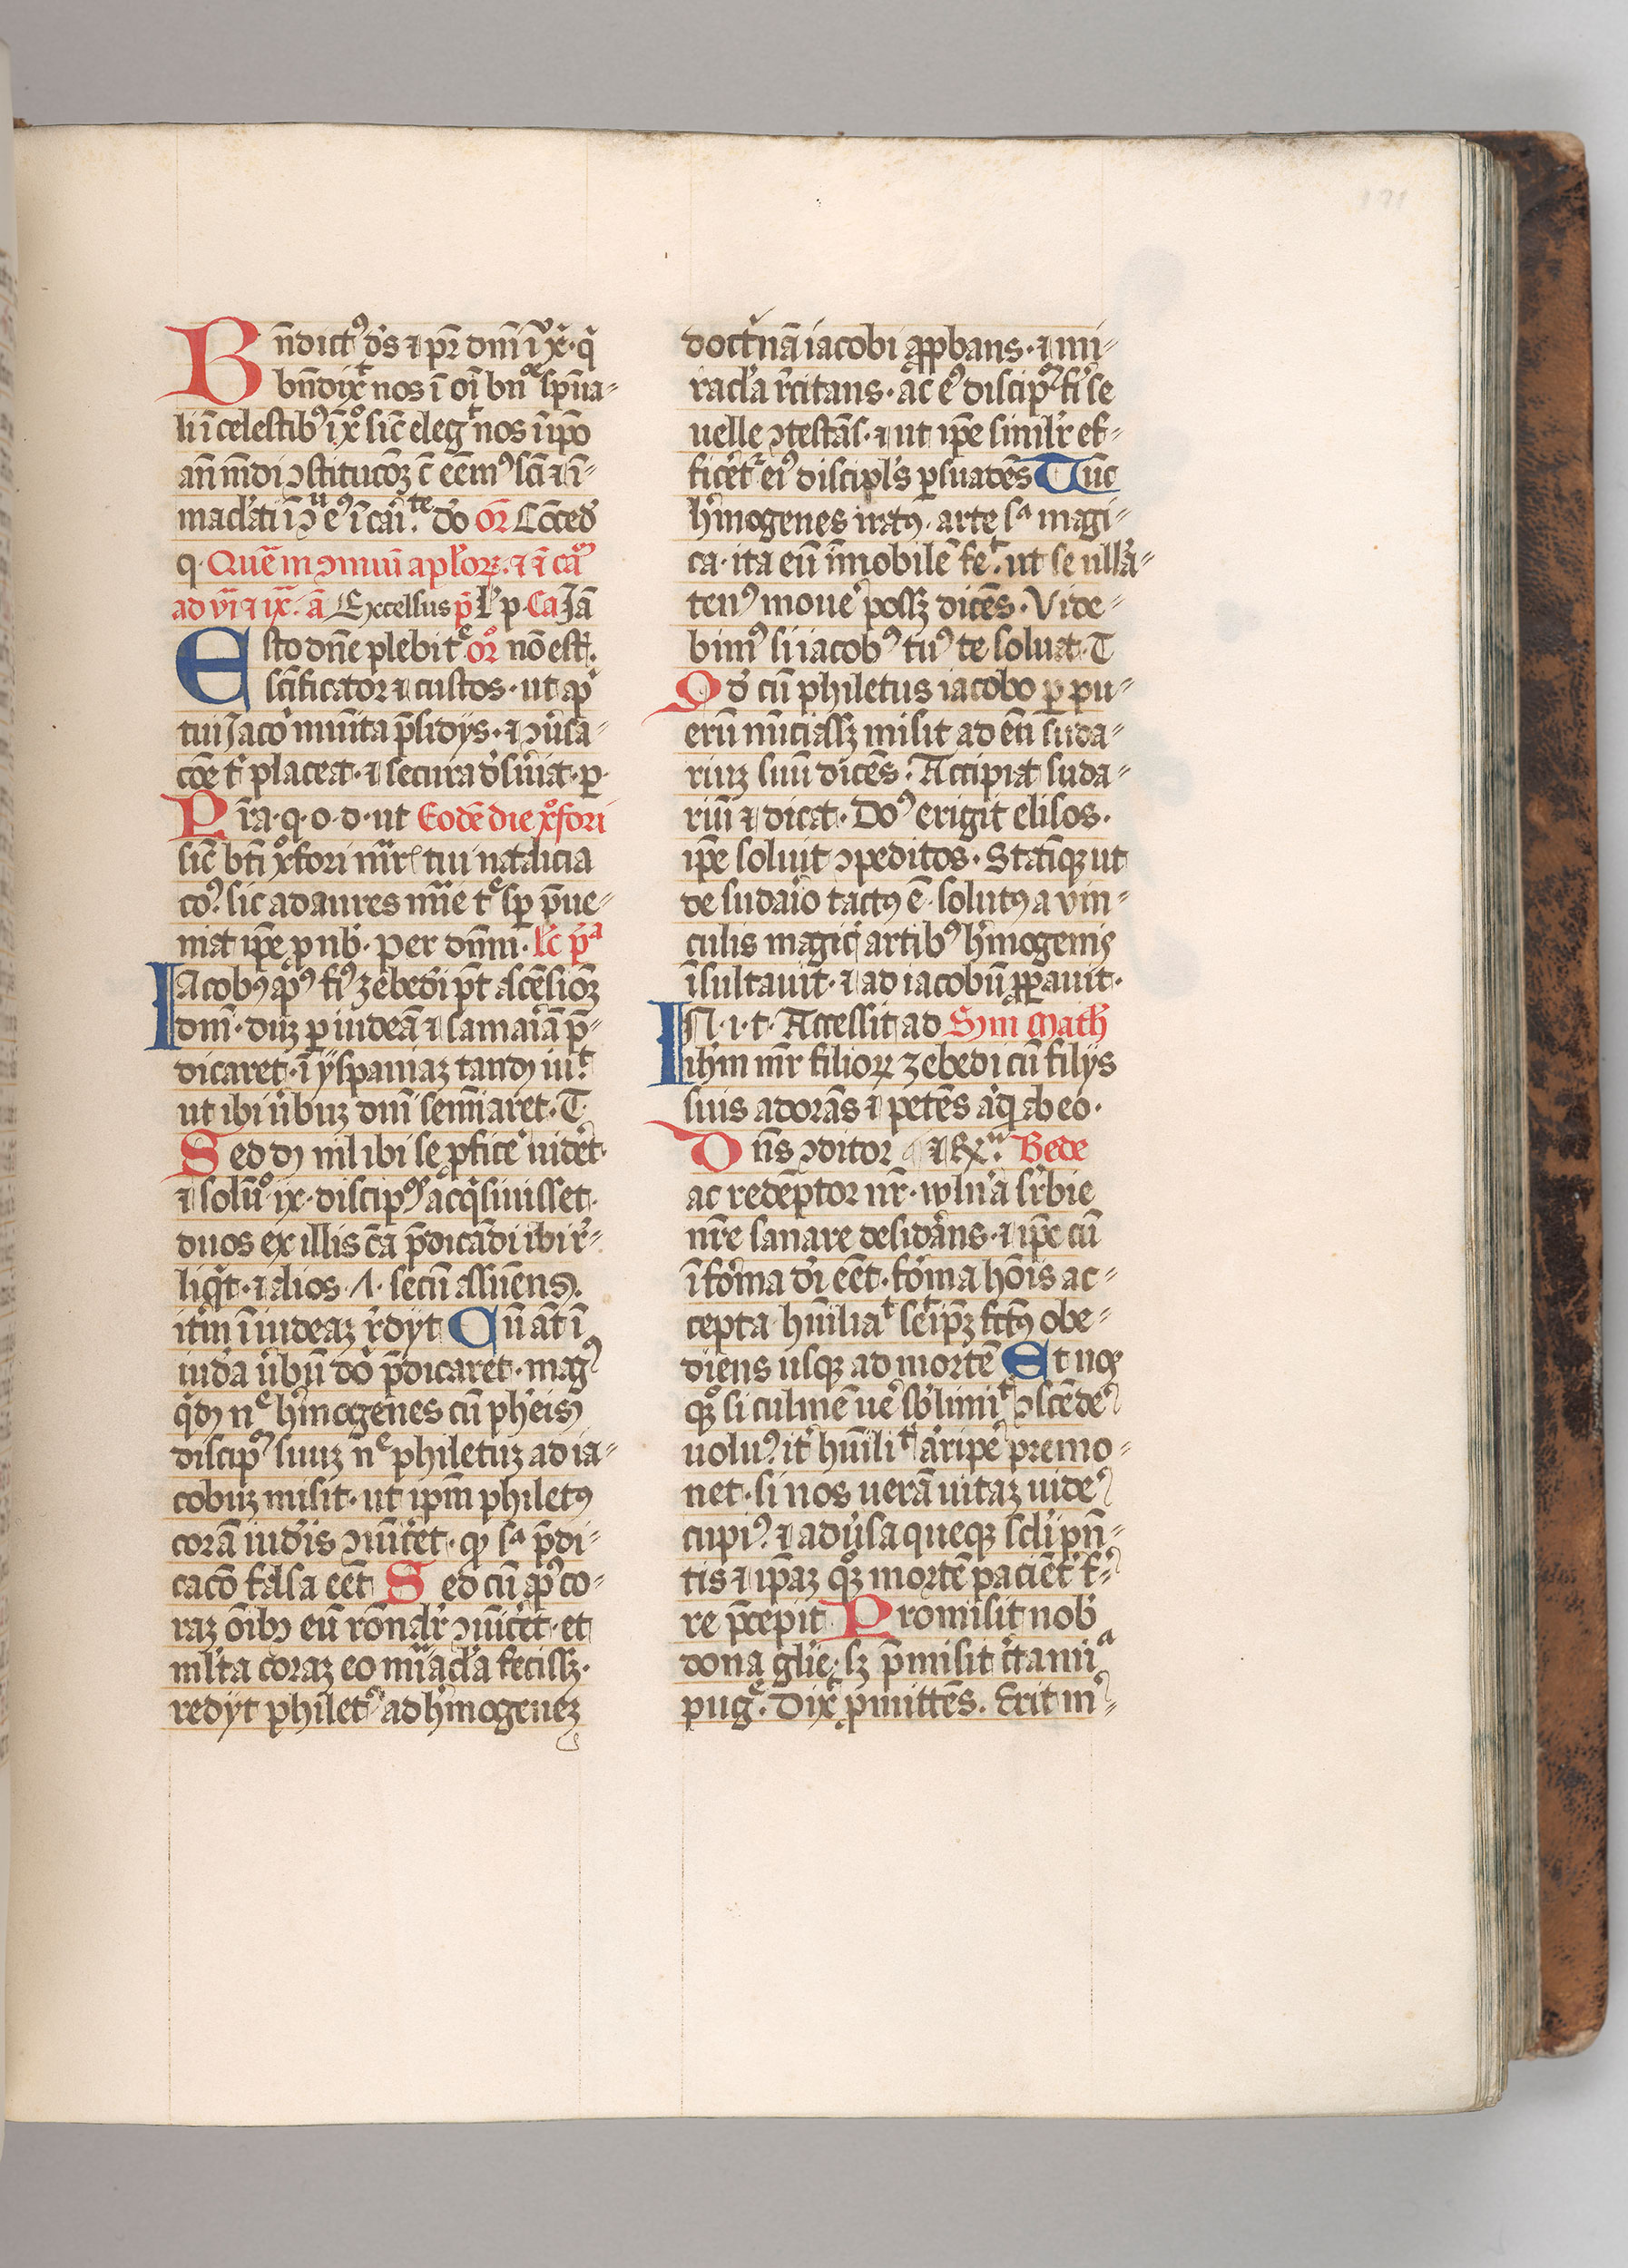 Bn̄dict᷒ ds̄ ⁊ pr̄ dn̄i īꝰ xp̄i q͛
bn̄dix͛ nos ī oı̄ bn̄ᵒᵉ sp̄ua-
li ī celestib᷒ ī xº sic̄ eleg͛ nos ī ip̄o
an̄ m̄di ꝯstitucōꝫ c̄ eēm᷒ sc̄i ⁊ ī-
macl̕ati ī ꝯͧ e᷒ ī cai̕.ᵗᵉ dº or̄ Cōced̕
q. Queᷓ m ꝯmuni apl̕oꝝ. ⁊ ī caᵒ᷒
ad viᷓ ⁊ ixᷓ. aᷓ Excelsus p̄ l̕ p Ca Jā
Esto dn̄e plebi tᵉ oº᷒ nō est̕.
sc̄ificator ⁊ custos. ut ap̕
tui Jaco̕ mun̄ita p̄sidijs. ⁊ ꝯu̕sa-
cōe t̕ placeat. ⁊ secura d̕suiat. ꝑ
Pr̄a. q. o. d. ut Eodē die xº̄fori
sic̄ bt̄i xº̄fori mr̄ˢ tui natalicia
co᷒. sic ad aures mīe tᵉ sp̄ p̄ue-
niat ip̄e ꝓ nb̕. Per dn̄m. lc̄ p̄ᵃ
Iacobꝰ ap᷒ fi᷒ zebedi̕ pt̄ ascēsioꝫ
dn̄i. duꝫ ꝑ iudeā ⁊ samaiā p̄-
dicaret. ī yspaniaꝫ tandꝫ iu.ͭ
ut ibi ūbuꝫ dn̄i semīaret. T
Sed dꝫ nil ibi se ꝓficē uidet̕.
⁊ solūº ix. discipº᷒ acq͛siuisset.
duos ex illis cā p̄dicādi ibi r̄-
liq͛t. ⁊ alios .ıı. secū assuēns.
itm̕ ī iudeaꝫ r̕dijt Cū at̄ ī
iuda̕ ūbū dº p̄dicaret. mag᷒
q͛dꝫ nᵉ hm̕ogenes cū pheis̕
discipº᷒ suuꝫ nᵉ philetuꝫ ad ia-
cobuꝫ misit. ut ip̄m philetꝰ
corā iude̕is ꝯuīcet̕. qꝫ sᵃ p̄di-
cacō falsa eēt Sed cū ap᷒ co-
raꝫ oīb᷒ eū rōnalr̕ ꝯuīcet̕. et
ml̕ta coraꝫ eo miᵃcl̕a fecissꝫ.
redijt philet᷒ ad hm̕ogeneꝫ
doctᶦnā iacobi aꝓbans. ⁊ mi-
racl̕a r̕citans. ac e᷒ discipᵐ fi̕ se
uelle ꝯtestās. ⁊ ut ip̄e similr̕ ef-
ficet̕ᵗ ei᷒ discipl̕s ꝑsuadēs Tūc
hm̕ogenes iratꝰ. arte sᵃ magi-
ca. ita eū īmobilē feͨ.ͭ ut se ulla̕-
ten᷒ mouē possꝫ dicēs. Vide-
bim᷒ si iacob᷒ tu᷒ te soluat. T
Qd̕ cū philetus iacobo ꝑ pu-
erū nūciassꝫ misit ad eū suda-
riuꝫ suū dicēs. Accipiat suda-
riū ⁊ dicat. Do᷒ erigit elisos.
ip̄e soluit ꝯpeditos. Statīqꝫ ut
de sudaıo tactꝰ ē. solutꝰ a vin-
culis magic̕ artib᷒ hm̕ogenis
īsultauit. ⁊ ad iacobū aꝓꝑauit.
IN. i. t. Accessit ad Sm̄ Math̕
ih̄m mr̄ filioꝝ zebedi cū filijs
suis adorās ⁊ petēs aq͛ ab eo.
Dn̄s ꝯditor ⁊ Rxᵘ. Bede
ac redēptor nr̄. wlna̕ sr̕bie
nr̄e sanare desidāns. ⁊ ip̄e cū
ī forma dı̄ eēt. forma hōis ac-
cepta hūiliaͭ seip̄ꝫ fct̄ꝰ obe-
diens usqꝫ ad mortē Et noˢ
qºꝫ si culmē ue̕ sb̕limiᵗ ꝯscēde᷒
uolu᷒. it̕ hūiliᵗ aripe̕ premo-
net. si nos uerā uitaꝫ uide᷒
cupi᷒. ⁊ adu̕sa queqꝫ scl̕i pn̄-
tis ⁊ ip̄aꝫ qºꝫ mortē paciēt̕ f᷒-
re p̄cepit Promisit nob̕
dona glīe. sꝫ p̄misit c̕taminᵃ
pugᵉ. Dix͛ ꝓmittēs. Erit m᷒-